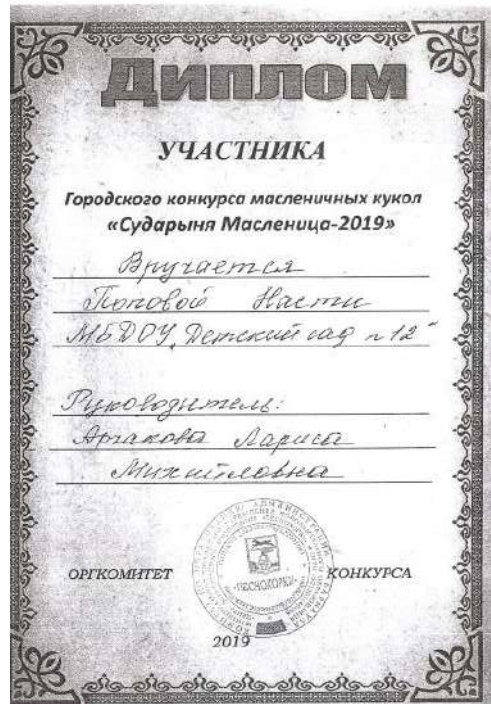 Диплом
УЧАСТНИКА
Городского конкурса масленичных кукол
«Сударыня Масленица-2019»
Вручается
Поповой Насти
МБДОУ „Детский сад №12"
Руководитель:
Лариса
Михайловна
ОРГКОМИТЕТ КОНКУРСА
2019